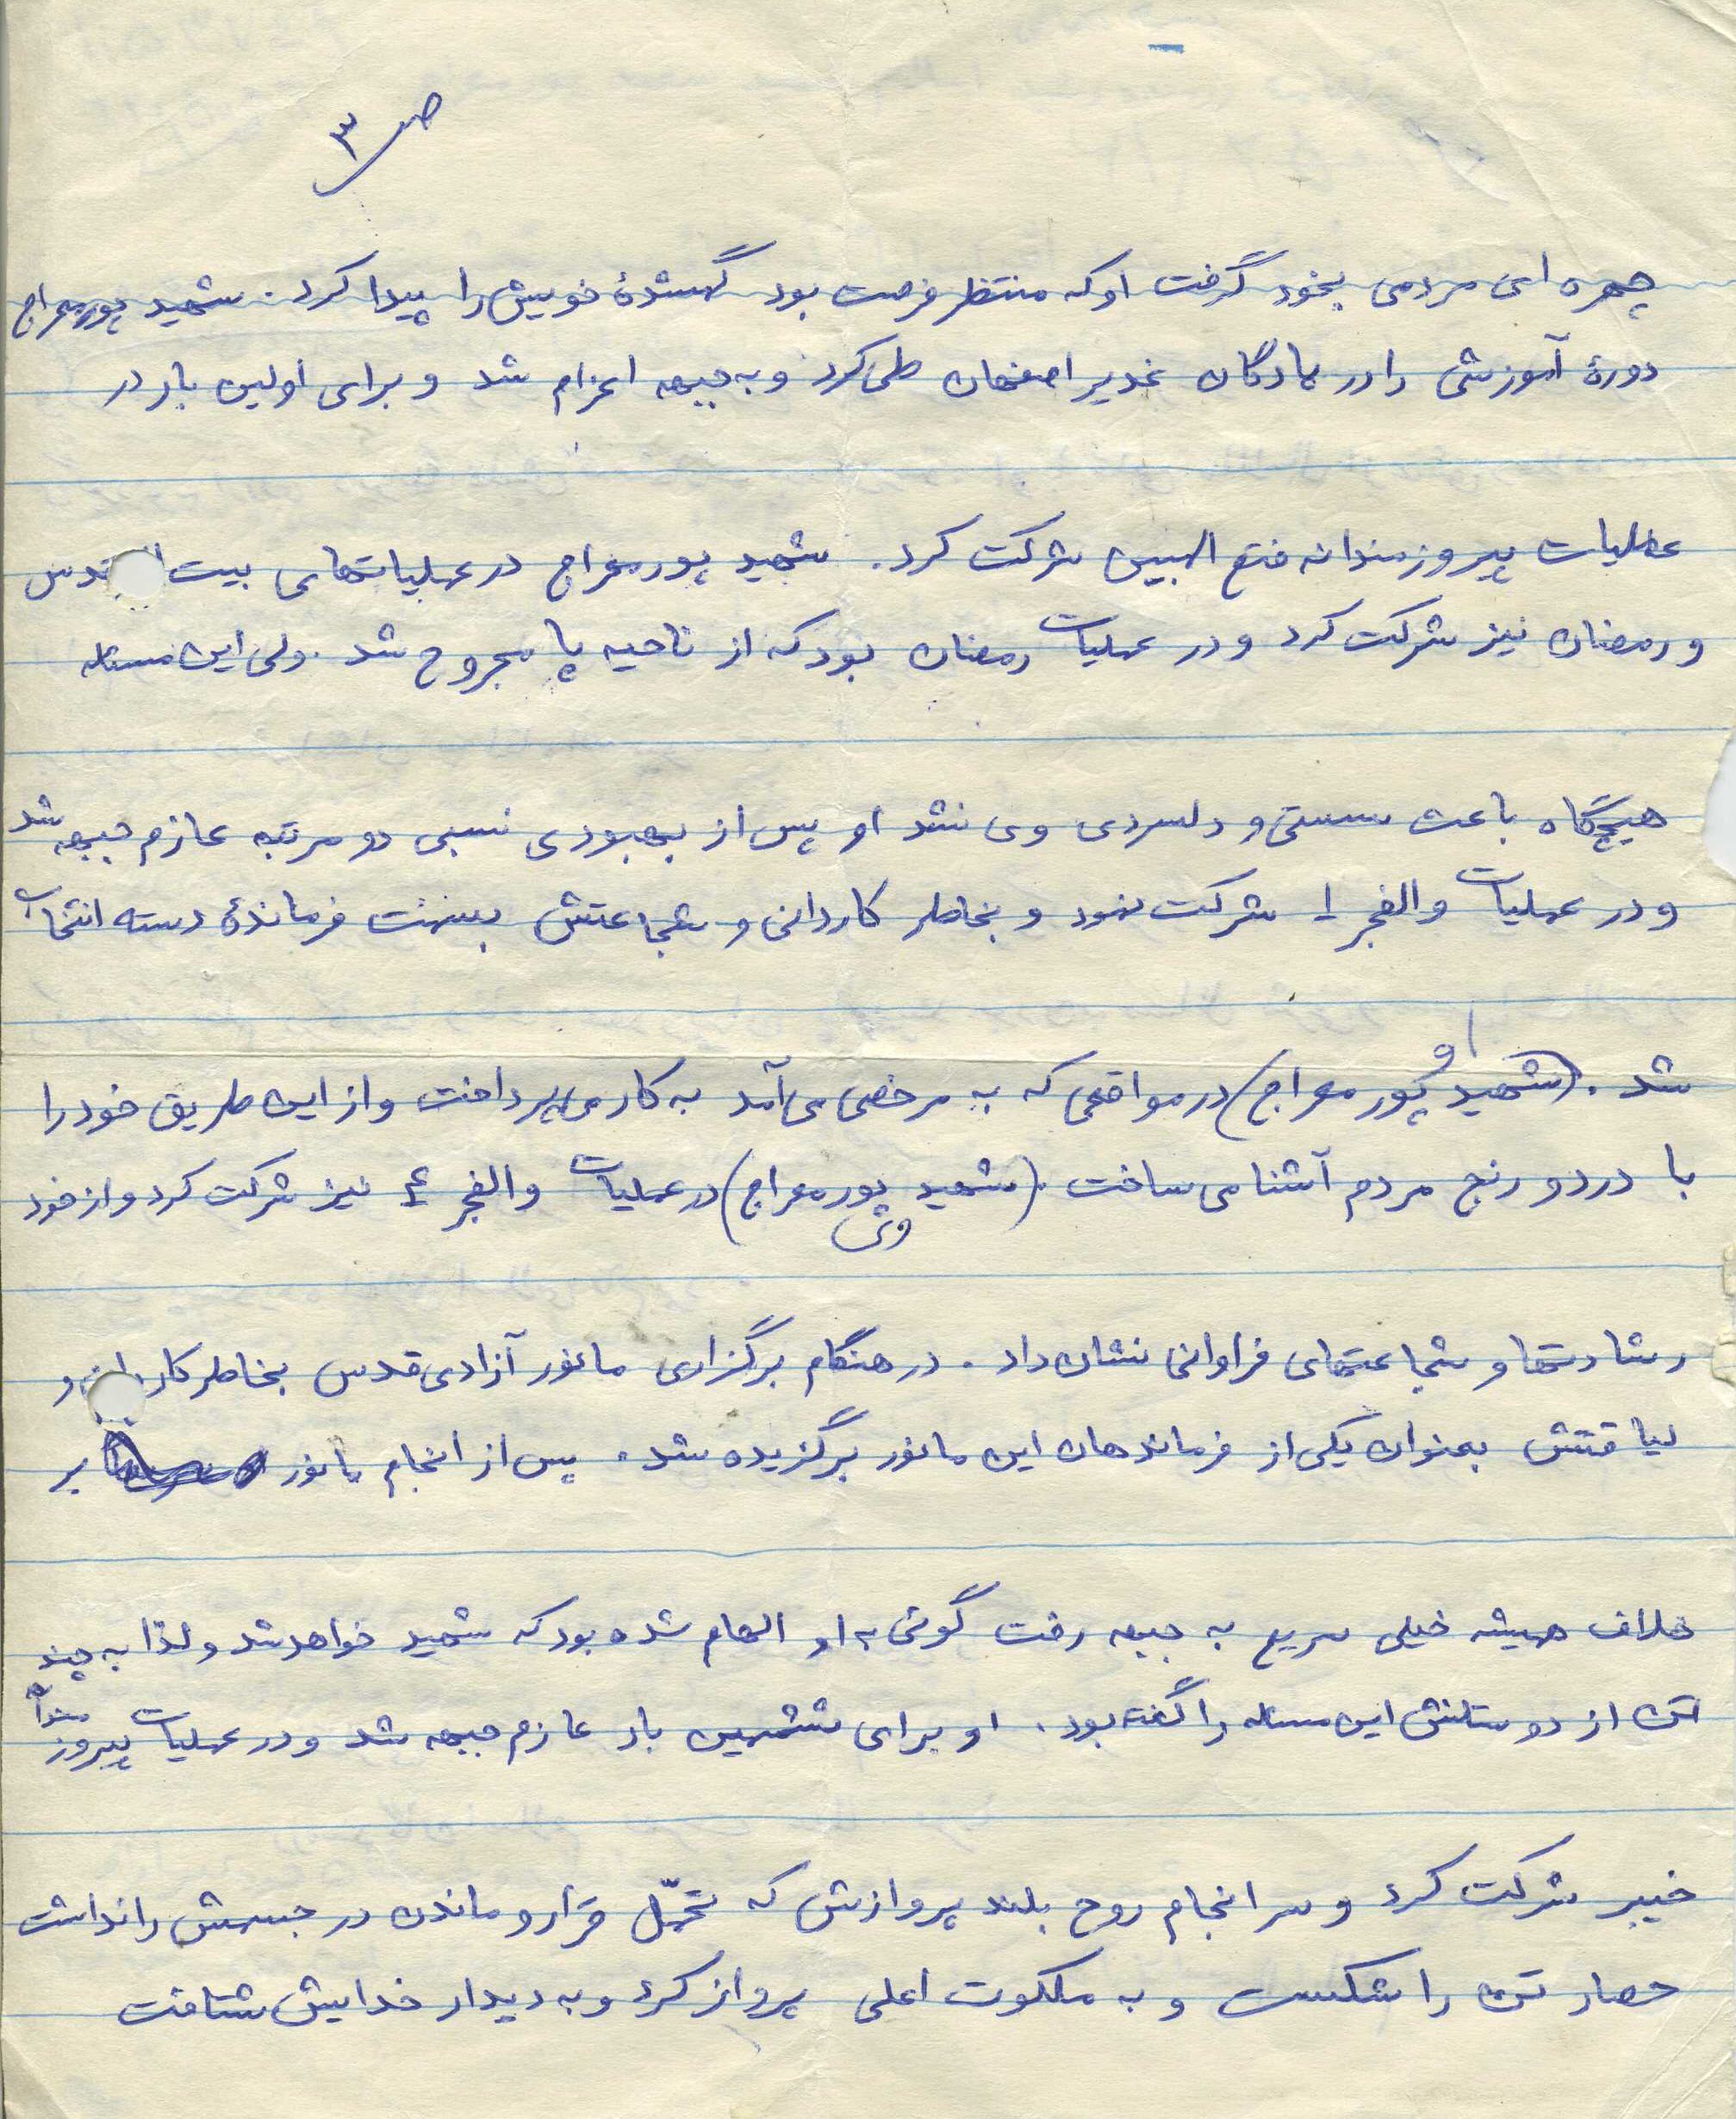 ص ۳
چهره ای مردمی بخود گرفت او که منتظر فرصت بود گمشدهٔ خویش را پیدا کرد. شهید پورمعراج
دورهٔ آموزشی را در پادگان غدیر اصفهان طی کرد و به جبهه اعزام شد و برای اولین بار در
عملیات پیروزمندانه فتح المبین شرکت کرد. شهید پورمعراج در عملیاتهای بیت القدس
و رمضان نیز شرکت کرد و در عملیات رمضان بود که از ناحیه پا مجروح شد. ولی این مسئله
هیچگاه باعث سستی و دلسردی وی نشد او پس از بهبودی نسبی دو مرتبه عازم جبهه شد
و در عملیات والفجر ۱ شرکت نمود و بخاطر کاردانی و شجاعتش بسمت فرماندهٔ دسته انتخاب
او
شد. (شهید پور معراج) در مواقعی که به مرخصی می آمد به کار می پرداخت و از این طریق خود را
با درد و رنج مردم آشنا می ساخت. (شهید پور معراج) در عملیات والفجر ۴ نیز شرکت کرد و از خود
وی
رشادتها و شجاعتهای فراوانی نشان داد. در هنگام برگزاری مانور آزادی قدس بخاطر کاردانی و
لیاقتش بعنوان یکی از فرماندهان این مانور برگزیده شد. پس از انجام مانور بر
خلاف همیشه خیلی سریع به جبهه رفت گوئی به او الهام شده بود که شهید خواهد شد و لذا به چند
تن از دوستانش این مسئله را گفته بود. او برای ششمین بار عازم جبهه شد و در عملیات پیروزمندانه
خیبر شرکت کرد و سرانجام روح بلند پروازش که تحمّل قرار و ماندن در جسمش را نداشت
حصار تن را شکست و به ملکوت اعلی پرواز کرد و به دیدار خدایش شتافت